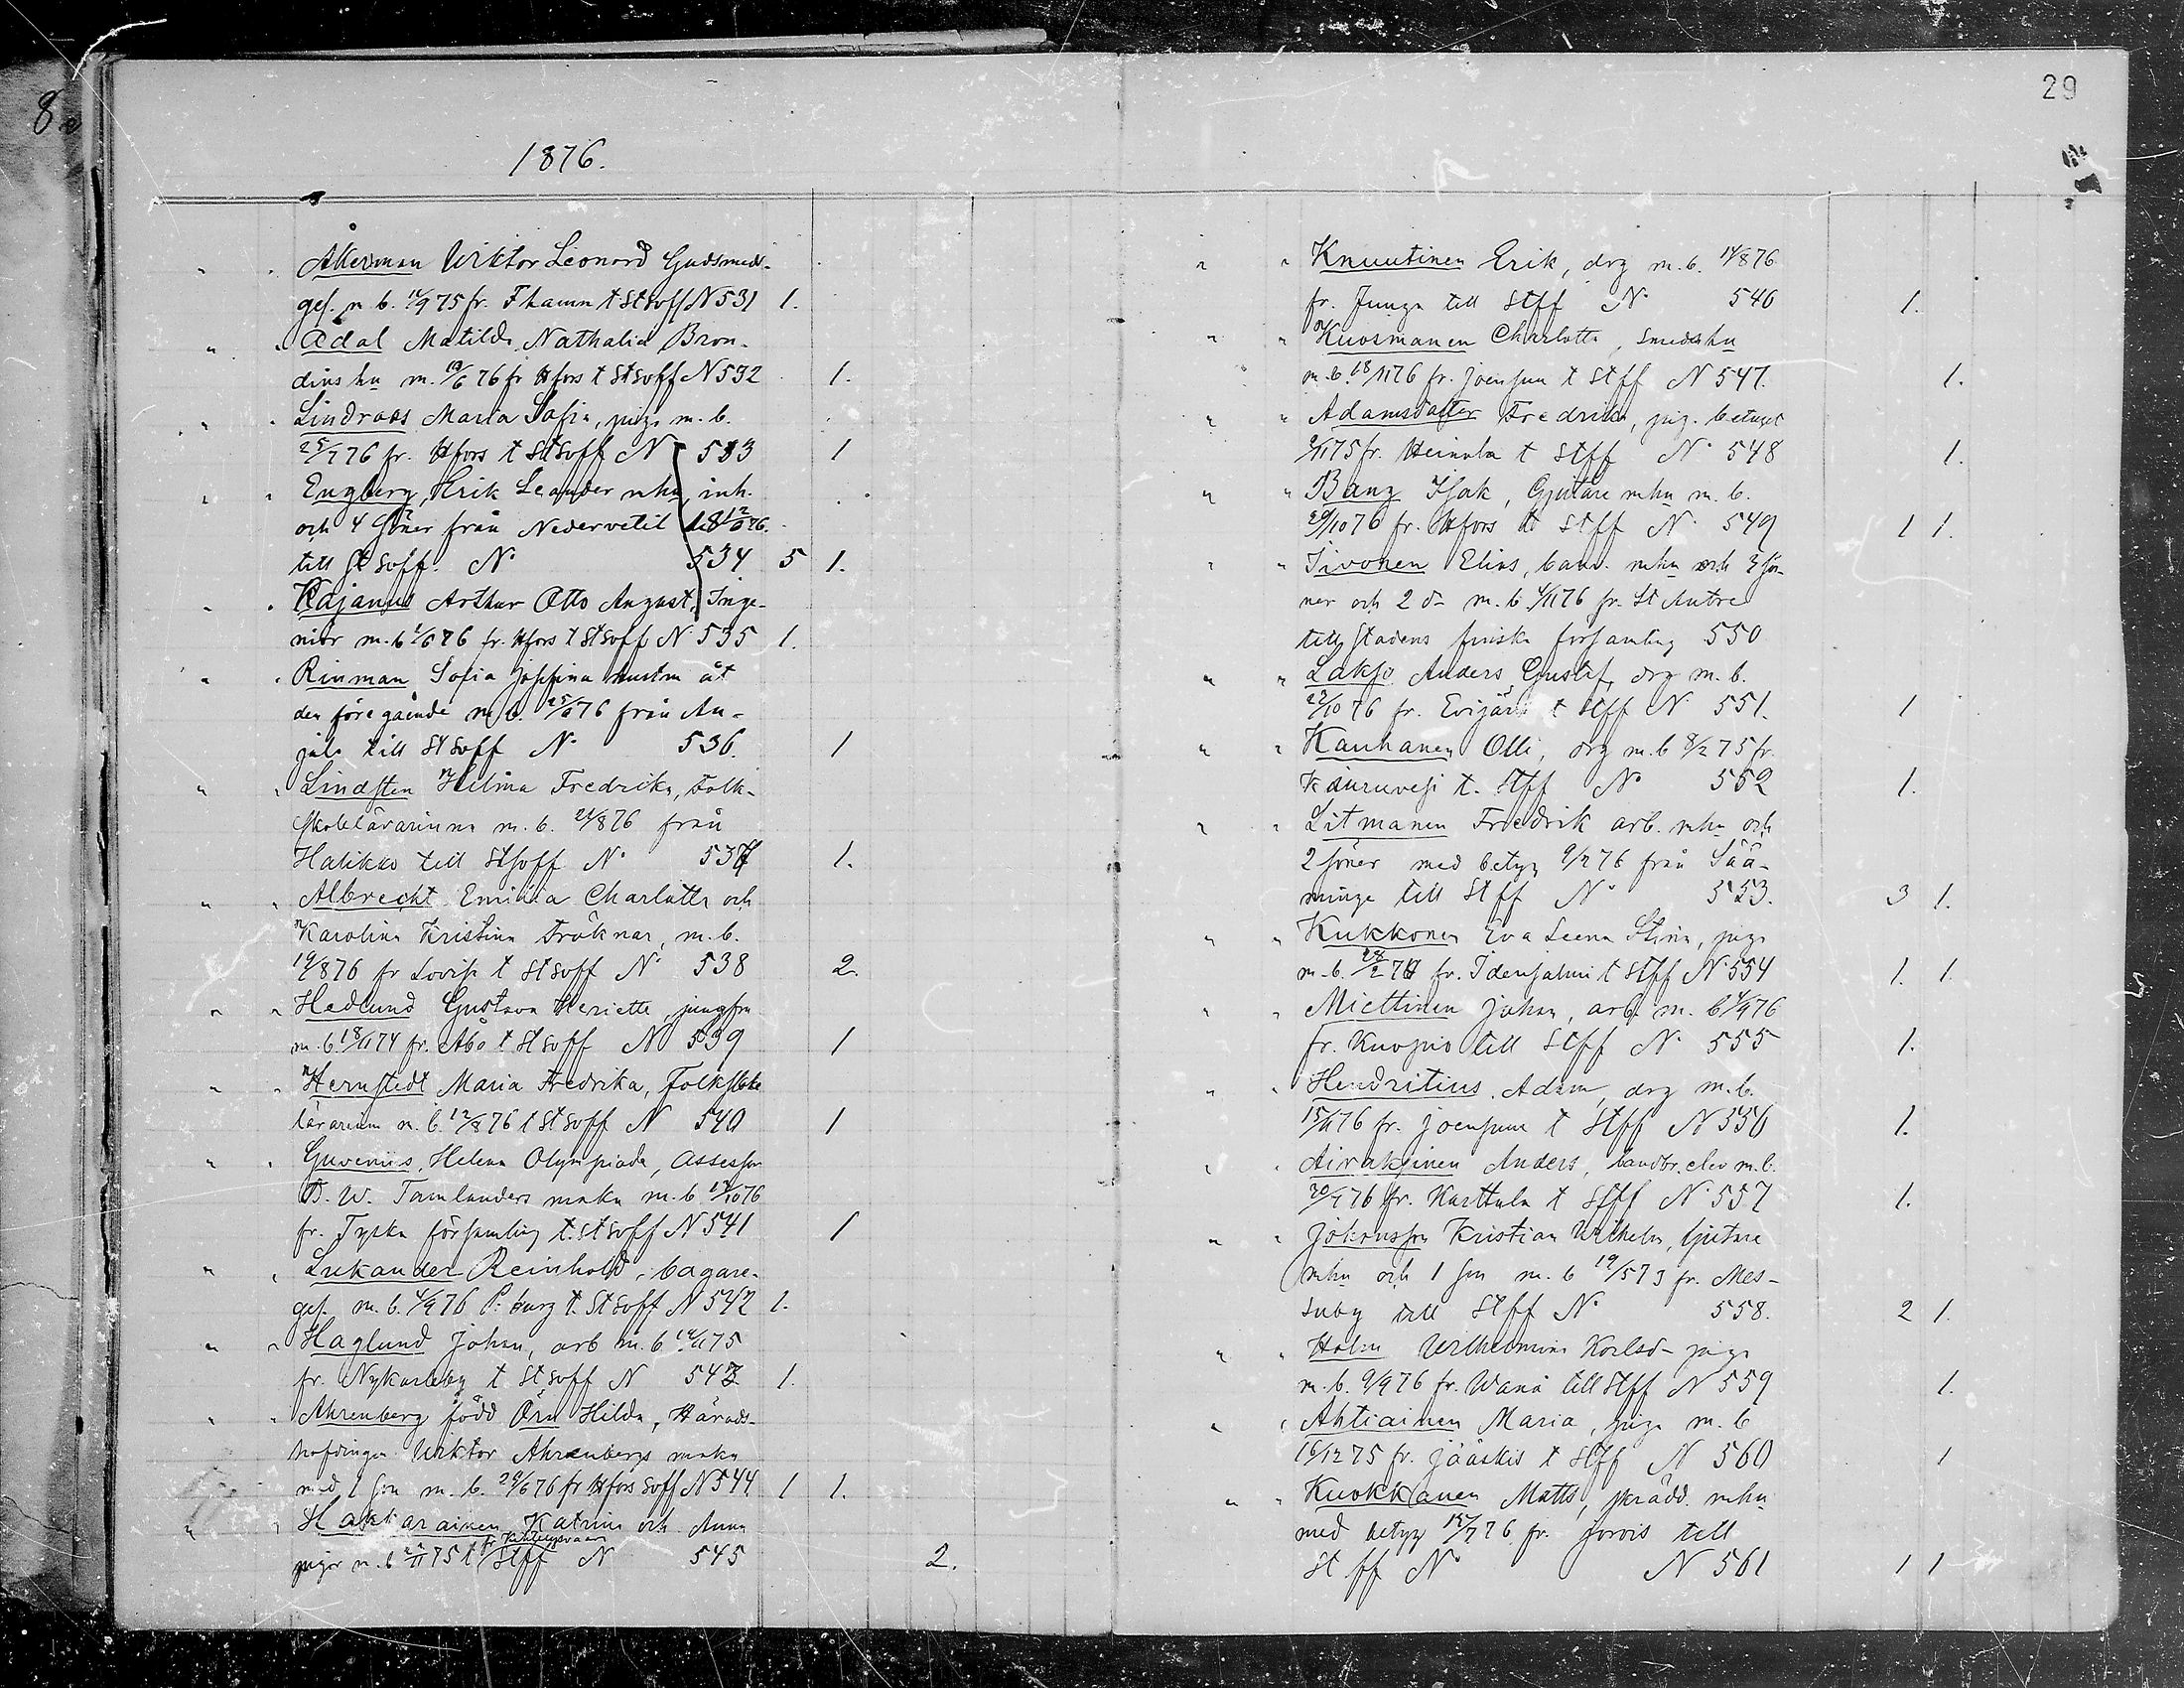 8
29
1876.
" " Åkerman Wiktor Leonard Guldsmeds-
ges. m b. 11/9 75 fr. Fhamn t St soff N 531 1.
" " Ådal Matilda Nathalia Bron-
dins hu m. 19/6 76 fr Hfors t St soff N 532 1.
" " Lindroos Maria Sofia, piga m. b.
25/7 76 fr. Hfors t St soff N 533 1
" " Engberg Erik Leander mhu, inh.
och 4 Söner från Nedervetil
till St soff. N 534 5 1.
" " Kajanus Arthur Otto August, Inge-
niör m. b 1/6 76 fr. Hfors t St soff N 535 1.
" " Rinman Sofia Josefina hustru åt
den föregående m. b. 25/6 76 från An-
jala till St soff N 536. 1
" " Lindsten Hilma Fredrika, Folk-
skolelärarinna m. b. 21/8 76 från
Halikko till St soff N 537 1.
" " Albrecht Emilia Charlotta och
Karolina Kristina Fröknar, m. b.
19/8 76 fr Lovisa t St soff N 538 2.
" " Hedlund Gustava Heriette, jungfru
m. b. 18/11 74 fr. Åbo t St soff N 539 1
" " Hernstedt Maria Fredrika, Folkskole
lärarinn m. b. 12/8 76 t St soff N 540 1
" " Guvenius, Helena Olympiada, Assessor
W. Tamlanders maka m. b 17/10 76
fr. Tyska församling t. St soff N 541 1
" " Lukander Reinhold, bagare-
ges. m. b. 4/9 76 P: burg t. St soff N 542 1.
" " Haglund Johan, arb m. b 14/11 75
fr. Nykarleby t St soff N 543 1.
" " Ahrenberg född Örn Hilda, Härads-
höfdingen Wiktor Ahrenbergs maka
med 1 son m. b. 29/6 76 fr Hfors soff N 544 1 1.
" " Hakkarainen Katrina och Anna
pigor m. b 2/11 75 t Stff N 545 2.
" " Knuutinen Erik, drg m. b. 14/8 76
fr. Junga till Stff N 546 1.
" " Kuosmanen Charlotta, smeds hu
m. b. 18/11 76 fr. Joensuu t Stff N 547. 1.
" " Adamsdotter Fredrika, pig. betyget
2/11 75 fr. Heinola t Stff N 548 1.
" " Bang Isak, Gjutare mhu m. b.
29/10 76 fr. Hfors t Stff N 549 1 1.
" " Sivonen Elias, mhu och 3 sö-
ner och 2 d- m. b 4/11 76 fr. St Andre
till Stadens finska församling 550
" " Laksjo Anders Gustaf, drg m. b.
23/10 76 fr. Evijärvi t Stff N 551. 1
" " Kauhanen Olli, drg m. b 8/2 75 fr.
Kiuruvesi t. Stff N 552 1.
" " Litmanen Fredrik arb. mhu och
2 söner med betyg 9/7 76 från Sää-
minge till Stff N 553. 3 1.
" " Kukkonen Eva Leena Stina, piga
m. b. 28/2 fr. Idensalmi t Stff N 554 1. 1.
" " Miettinen Johan, arb. m. b 4/9 76
fr. Kuopio till Stff N 555 1.
" " Hendritius Adam, drg m. b.
15/11 76 fr. Joensuu t Stff N 556 1.
" " Airaksinen Anders, landbr. elev m. b.
20/9 76 fr. Karttula t Stff N 557 1.
" " Johansson Kristian Wilhelm, Gjutare
mhu och 1 son m. b 19/5 73 fr. Mes-
suby till Stff N 558. 2 1.
" " Holm Wilhelmina Karlsd- piga
m. b. 9/9 76 fr. Wånå till Stff N 559 1.
" " Ahtiainen Maria, piga m. b
16/12 75 fr. Jääskis t Stff N 560 1
" " Kuokkanen Matts, skrädd. mhu
med betyg 12/7 76 fr. Jorois till
St ff N N 561 1 1